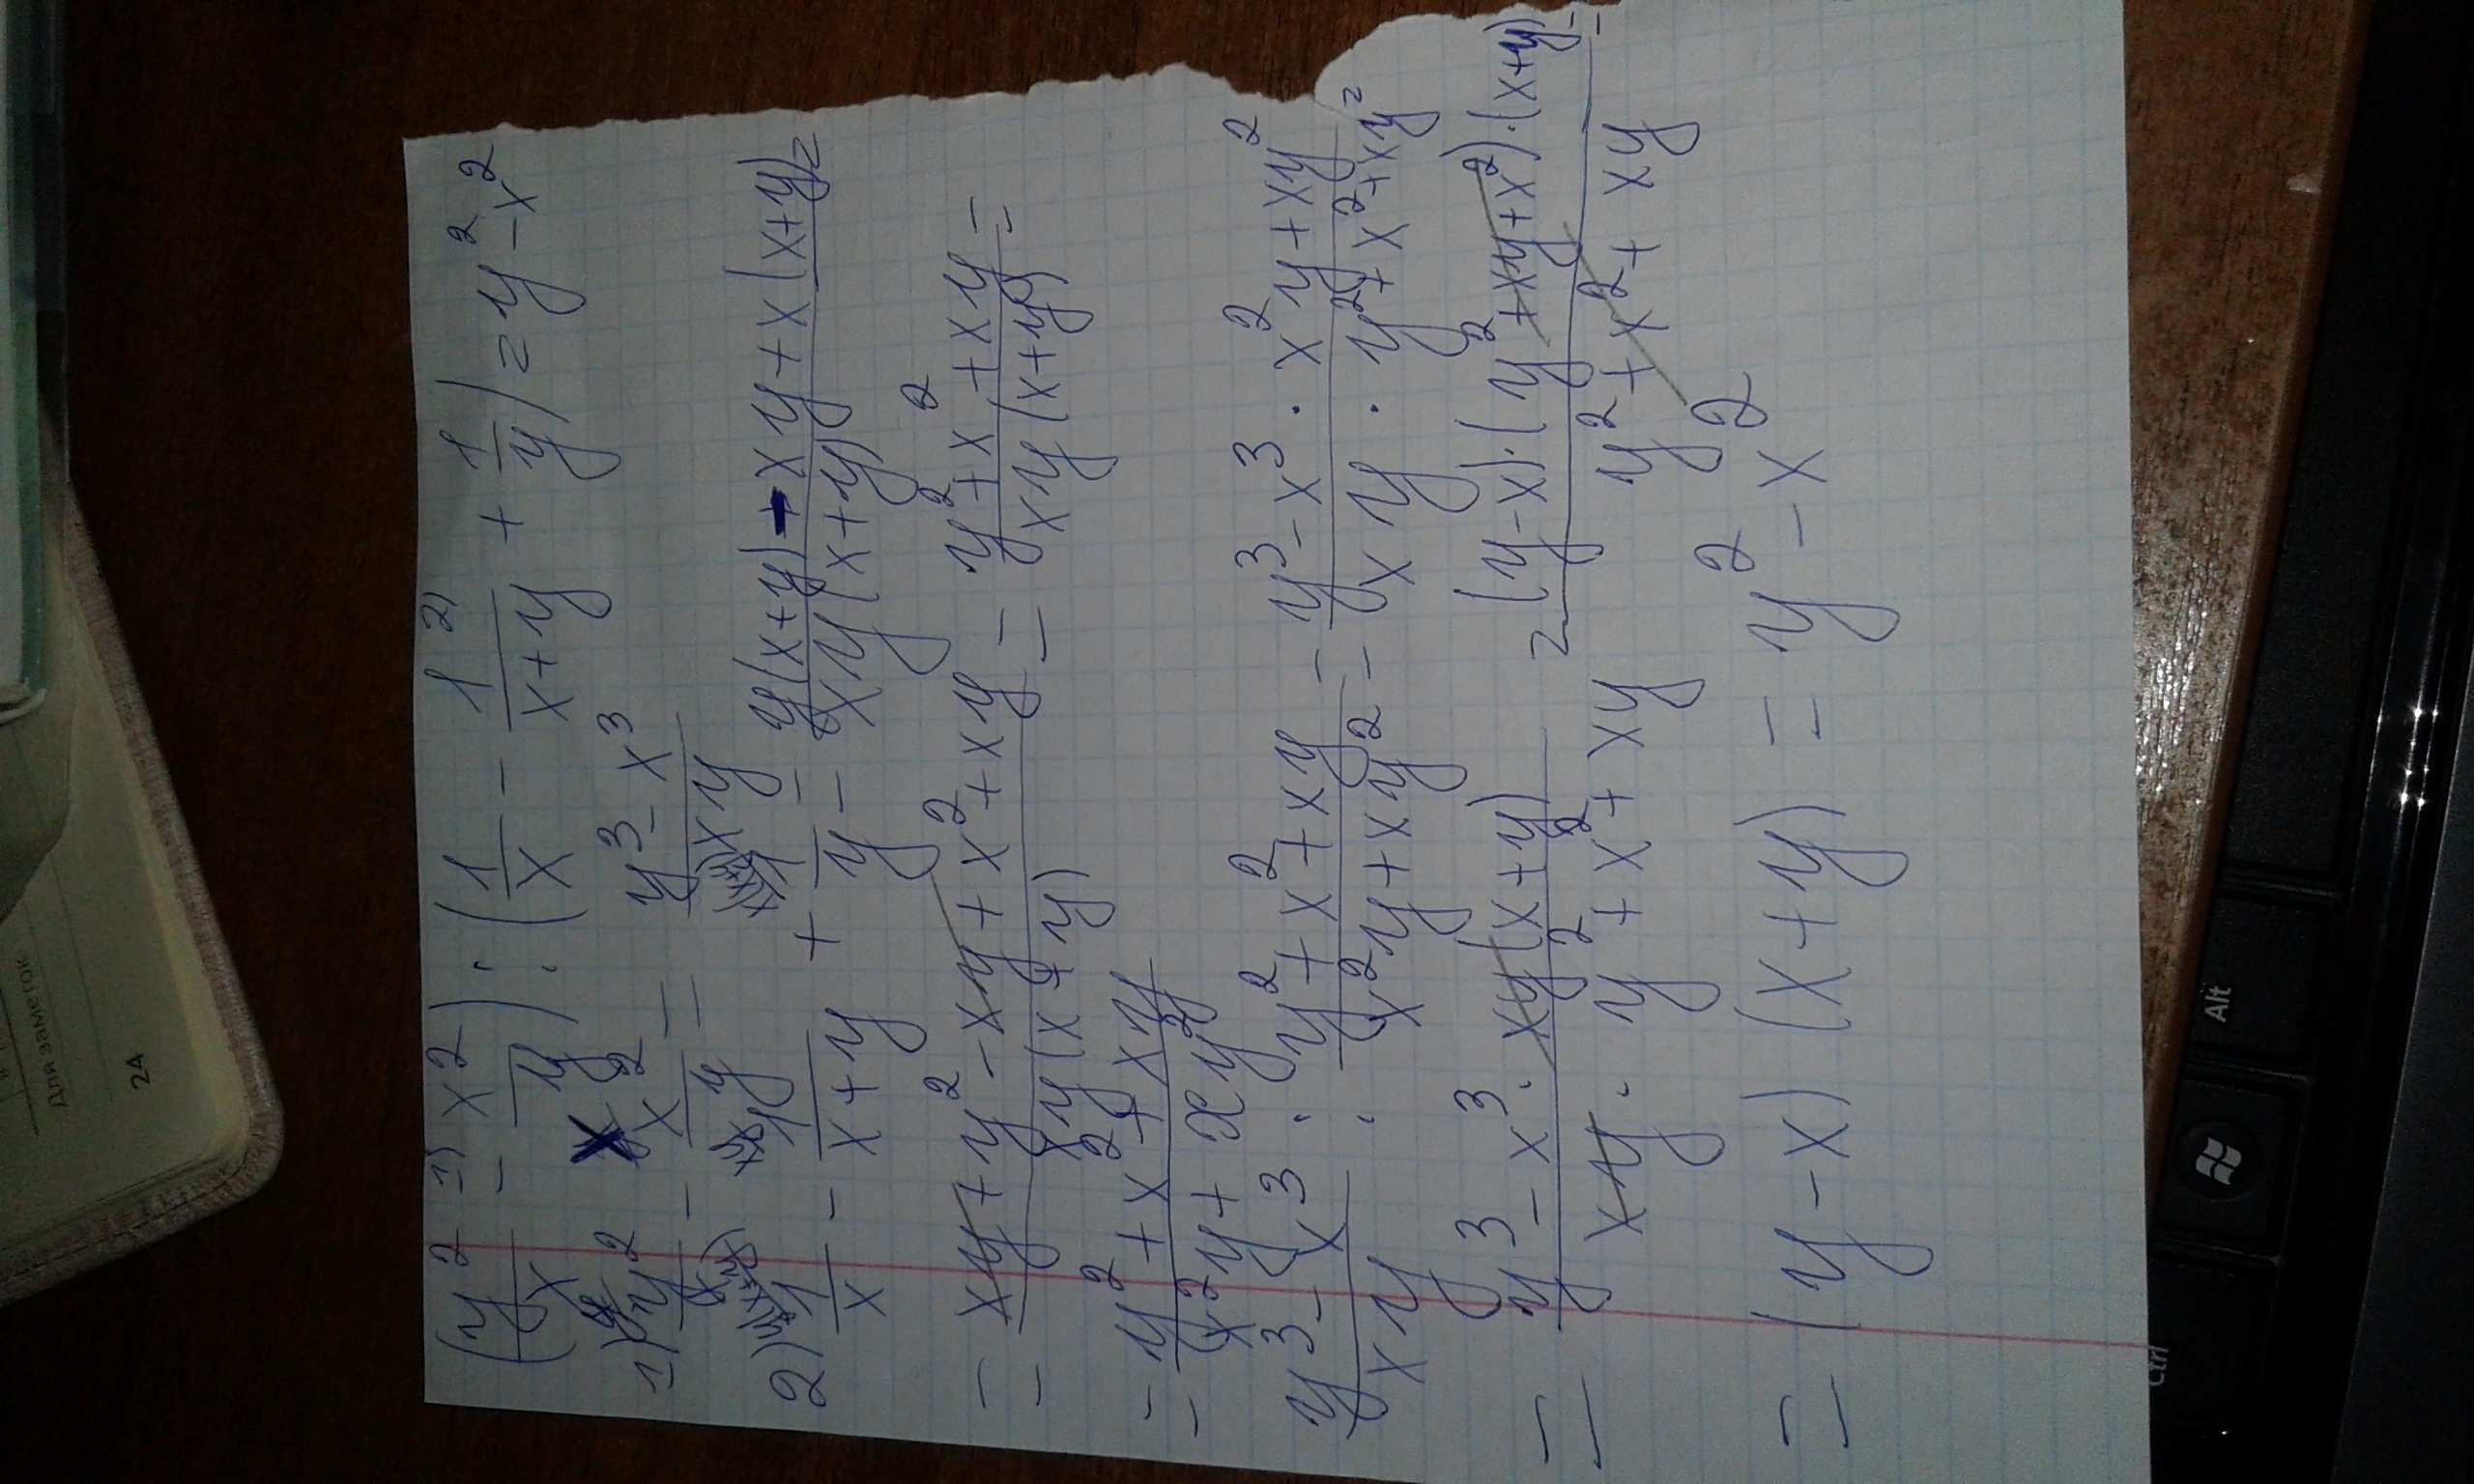 (y²/x - x²/y) : (1/x - 1/(x+y) + 1/y) = y² - x²
1) y²/x - x²/y = (y³ - x³)/xy
2) 1/x - 1/(x+y) + 1/y = (y(x+y) - xy + x(x+y))/(xy(x+y)) =
= (xy + y² - xy + x² + xy)/(xy(x+y)) = (y² + x² + xy)/(xy(x+y)) =
= (y² + x² + xy)/(x²y + xy²)
(y³ - x³)/xy : (y² + x² + xy)/(x²y + xy²) = (y³ - x³ · x²y + xy²)/(xy · y² + x² + xy) =
= (y³ - x³ · xy(x+y))/(xy · y² + x² + xy) = ((y-x)·(y² + xy + x²)·(x+y))/(y² + x² + xy) =
= (y - x)(x + y) = y² - x²
Для заметок
24
Alt
Ctrl